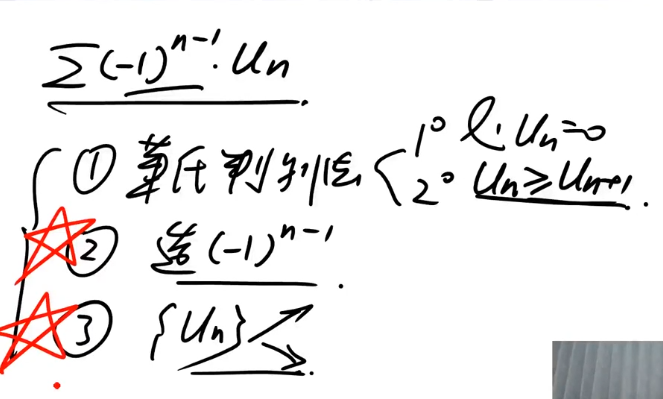 ∑(-1)^{n-1}·Un
① 莱氏判别法 { 1° l. Un=0
2° Un≥Un+1.
② 造(-1)^{n-1}.
③ {Un}↗↘.